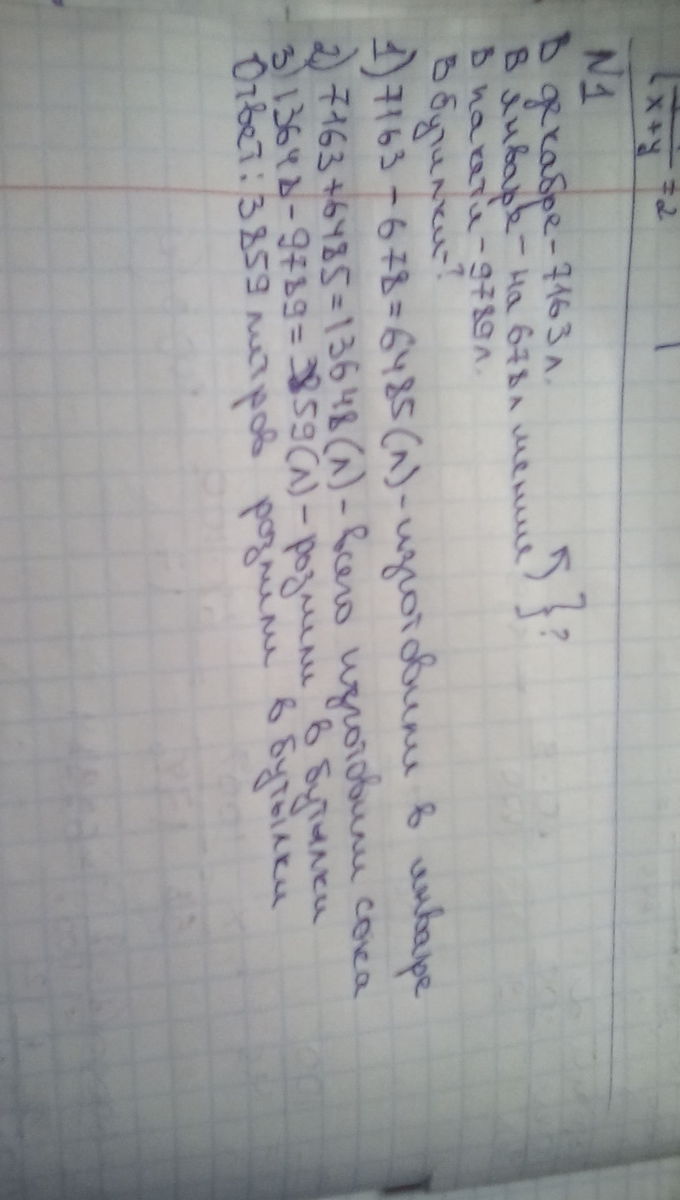 x+y = 2
N1
В декабре - 7163 л.
В январе - на 678 л меньше } ?
В пакеты - 9789 л.
В бутылки - ?
1) 7163 - 678 = 6485 (л) - изготовили в январе
2) 7163 + 6485 = 13648 (л) - всего изготовили сока
3) 13648 - 9789 = 3859 (л) - розлили в бутылки
Ответ: 3859 литров розлили в бутылки